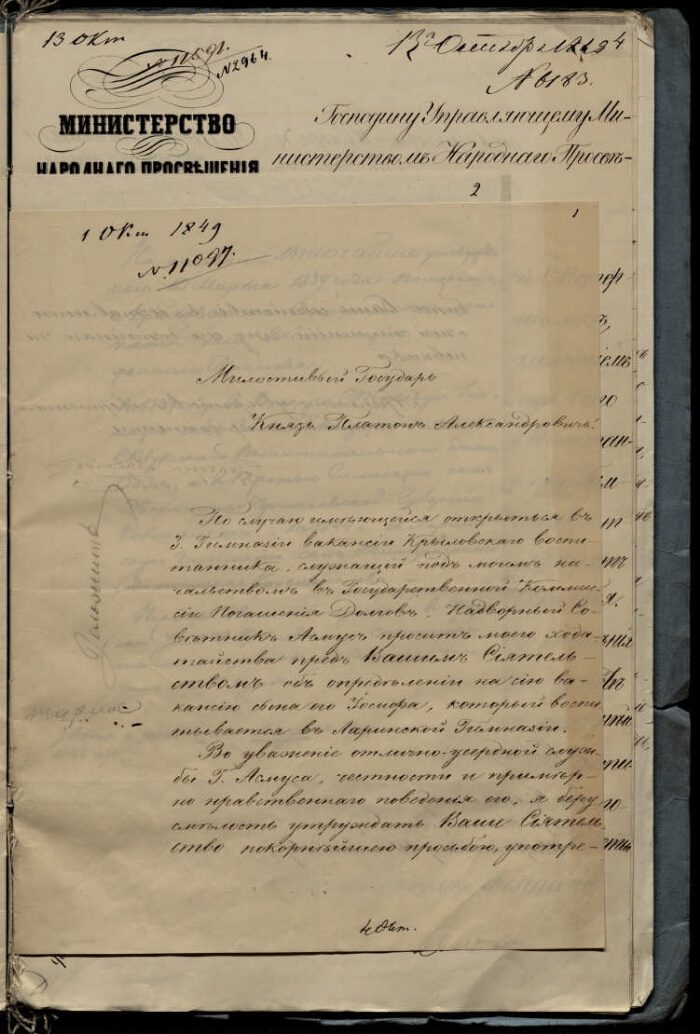 13 Окт
N 11091.
N 2964.
МИНИСТЕРСТВО
НАРОДНАГО ПРОСВѢЩЕНІЯ
N 6183.
Господину Управляющему Ми-
нистерствомъ Народнаго Просвѣ-
2
1
1 Окт 1849
N. 11097.
Милостивый Государь
Князь Платонъ Александровичь!
По случаю имѣющейся открыться въ
3. Гимназіи вакансіи Крыловскаго воспи-
танника, служащій подъ моимъ на-
чальствомъ въ Государственной Коммис-
сіи Погашенія Долговъ, Надворный Со-
вѣтникъ Асмусъ проситъ моего хода-
тайства предъ Вашимъ Сіятель-
ствомъ объ опредѣленіи на сію ва-
кансію сына его Іосифа, который воспи-
тывается въ Ларинской Гимназіи.
Во уваженіе отлично-усердной служ-
бы Г. Асмуса, честности и примѣр-
но нравственнаго поведенія его, я беру
смѣлость утруждать Ваше Сіятель-
ство покорнѣйшею просьбою, употре-
4 Окт.